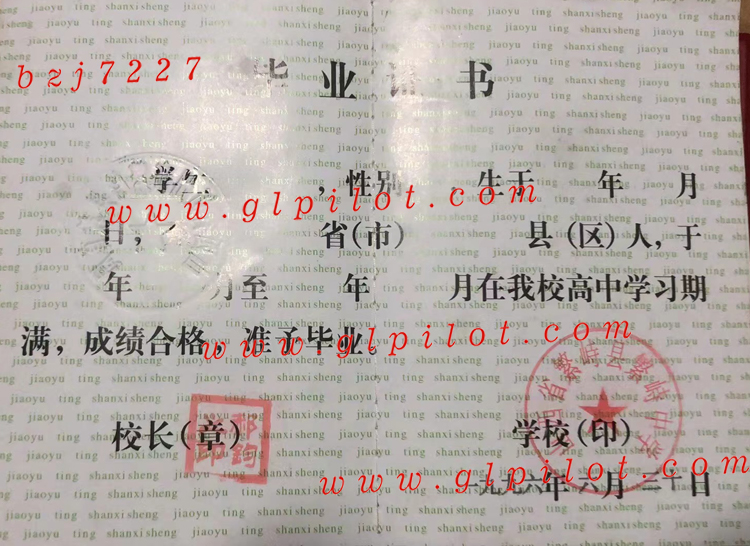 bzj7227
毕业证书
学 ，性别 生于 年 月
www.glpilot.com
日， 省(市) 县(区)人，于
年 月至 年 月在我校高中学习期
满，成绩合格，准予毕业。
www.glpilot.com
校长(章) 学校(印)
www.glpilot.com
一九九六年六月三十日
繁峙县繁峙中学
jiaoyu ting shanxisheng